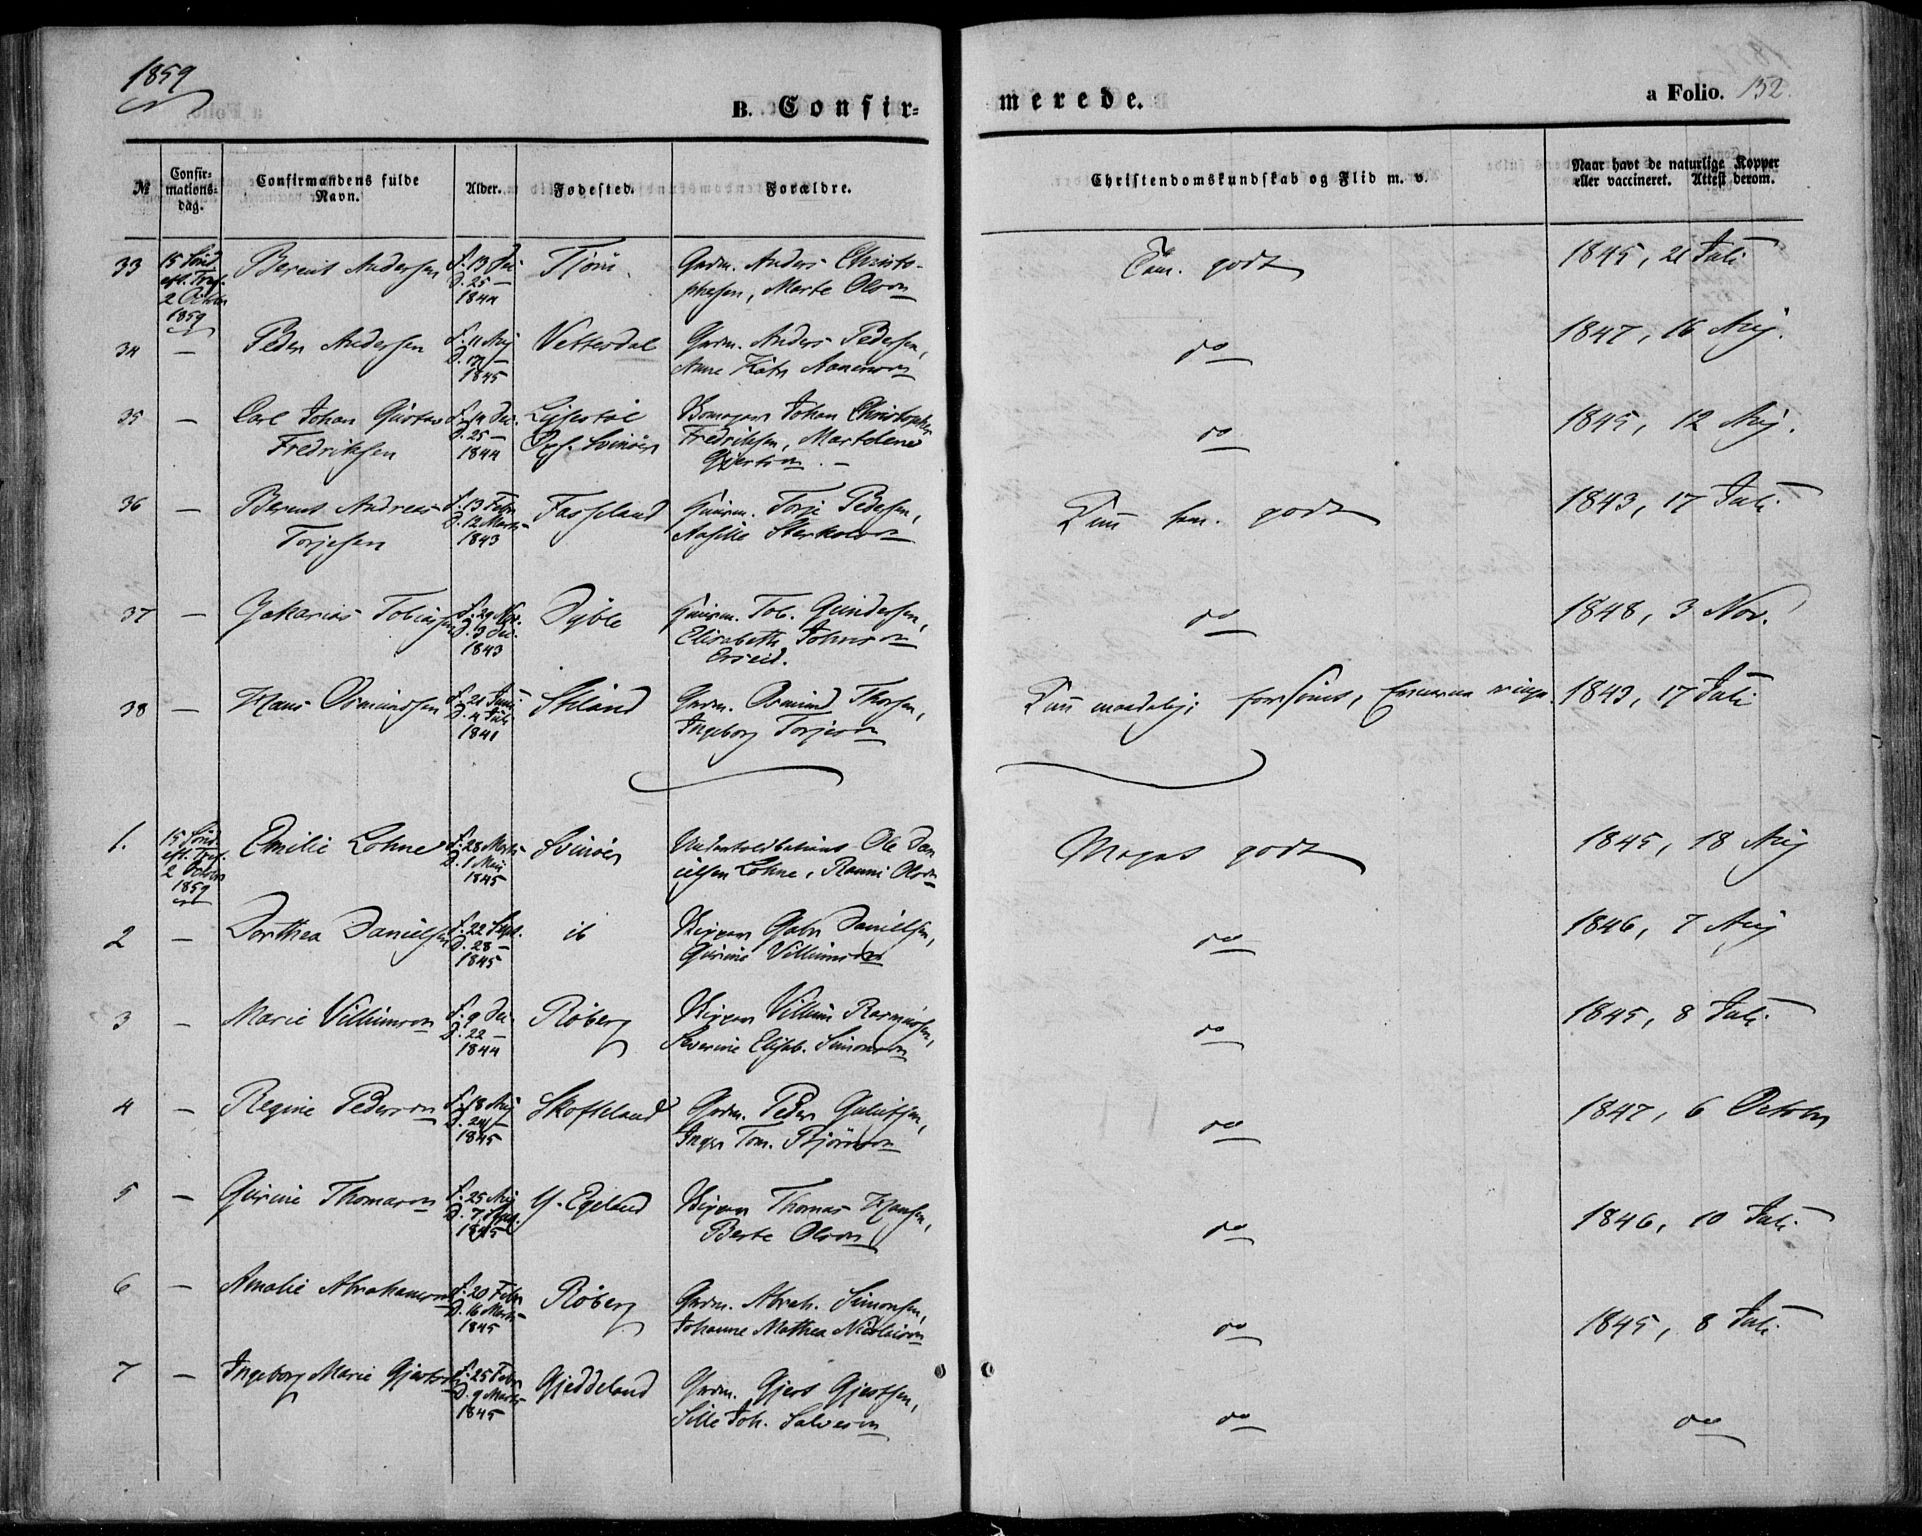 1859
B. Confirmerede.
a Folio. 152.
№
Confirmationsdag.
Confirmandens fulde Navn.
Alder.
Fødested.
Forældre.
Christendomskundskab og Flid m. v.
Naar havt de naturlige Kopper eller vaccineret. Attest derom.
33 15 Sønd. eft. Tref. 2 October 1859 Berent Andersen f. 13 Dec. D. 25 — 1844 Tjøm. Gdm. Anders Christophersen, Marte Olsdn Tem. godt 1845, 21 Juli
34 — Peder Andersen f. 11 Aug D. 17/— 1845 Vetterdal Gdm. Anders Pedersen, Anne Kath. Aanensdn do 1847, 16 Aug.
35 — Carl Johan Gustav Fredriksen f. 14 Dec. D. 25 — 1844 Svinøer Johan Christopher Fredriksen, Martelene Gjertsdn. — do 1845, 12 Aug.
36 — Berent Andreas Torjesen f. 13 Febr D. 12 Marts 1843 Fasseland Huusm. Torje Pedersen, Aasille Sterkolsdn Kun tem. godt 1843, 17 Juli
37 — Zakarias Tobiassen f. 29 Nov. D. 3 Dec. 1843 Dyble Huusm. Tob. Gundersen, Elisabeth Johnsdn do 1848, 3 Nov.
38 — Hans Osmundsen f. 21 Juni D. 4 Juli 1841 Stiland Gdm. Osmund Thorsen, Ingeborg Torjesdn Kun maadelig; forsømt, Evnerne ringe. 1843, 17 Juli
1. 15 Sønd. eft. Tref. 2 October 1859 Emilie Lohne f. 28 Marts D. 1 Mai 1845 Svinøer Ole Danielsen Lohne, Ranni Olsdn Meget godt 1845, 18 Aug
2 — Dorthea Danielsen f. 22 Sept. D. 28 — 1845 ib Skipper Gabr Danielsen, Gurine Villumsdn do 1846, 7 Aug
3 — Marie Villumsdn f. 9 Dec D. 22 — 1844 Røberg Skipper Villum Rasmussen, Severine Elisab. Simonsdn do 1845, 8 Juli
4 — Regine Pedersdn f. 18 Aug D. 24/— 1845 Skofteland Gdm. Peder Gulufsen, Inger Tom. Bjørnsdn do 1847, 6 October
5 — Gurine Thomasdn f. 25 Aug D. 7 Sept. 1845 Y. Egeland Skipper Thomas Hansen, Berte Olsdn do 1846, 10 Juli
6 — Amalie Abrahamsdn f. 20 Febr D. 16 Marts 1845 Røberg Gdm. Abrah. Simonsen, Johanne Mathea Nicolaisdn do 1845, 8 Juli
7 — Ingeborg Marie Gjertsdn f. 25 Febr D. 9 Marts 1845 Gjeddeland Gdm. Gjert Gjertsen, Sille Joh. Salvesdn do do